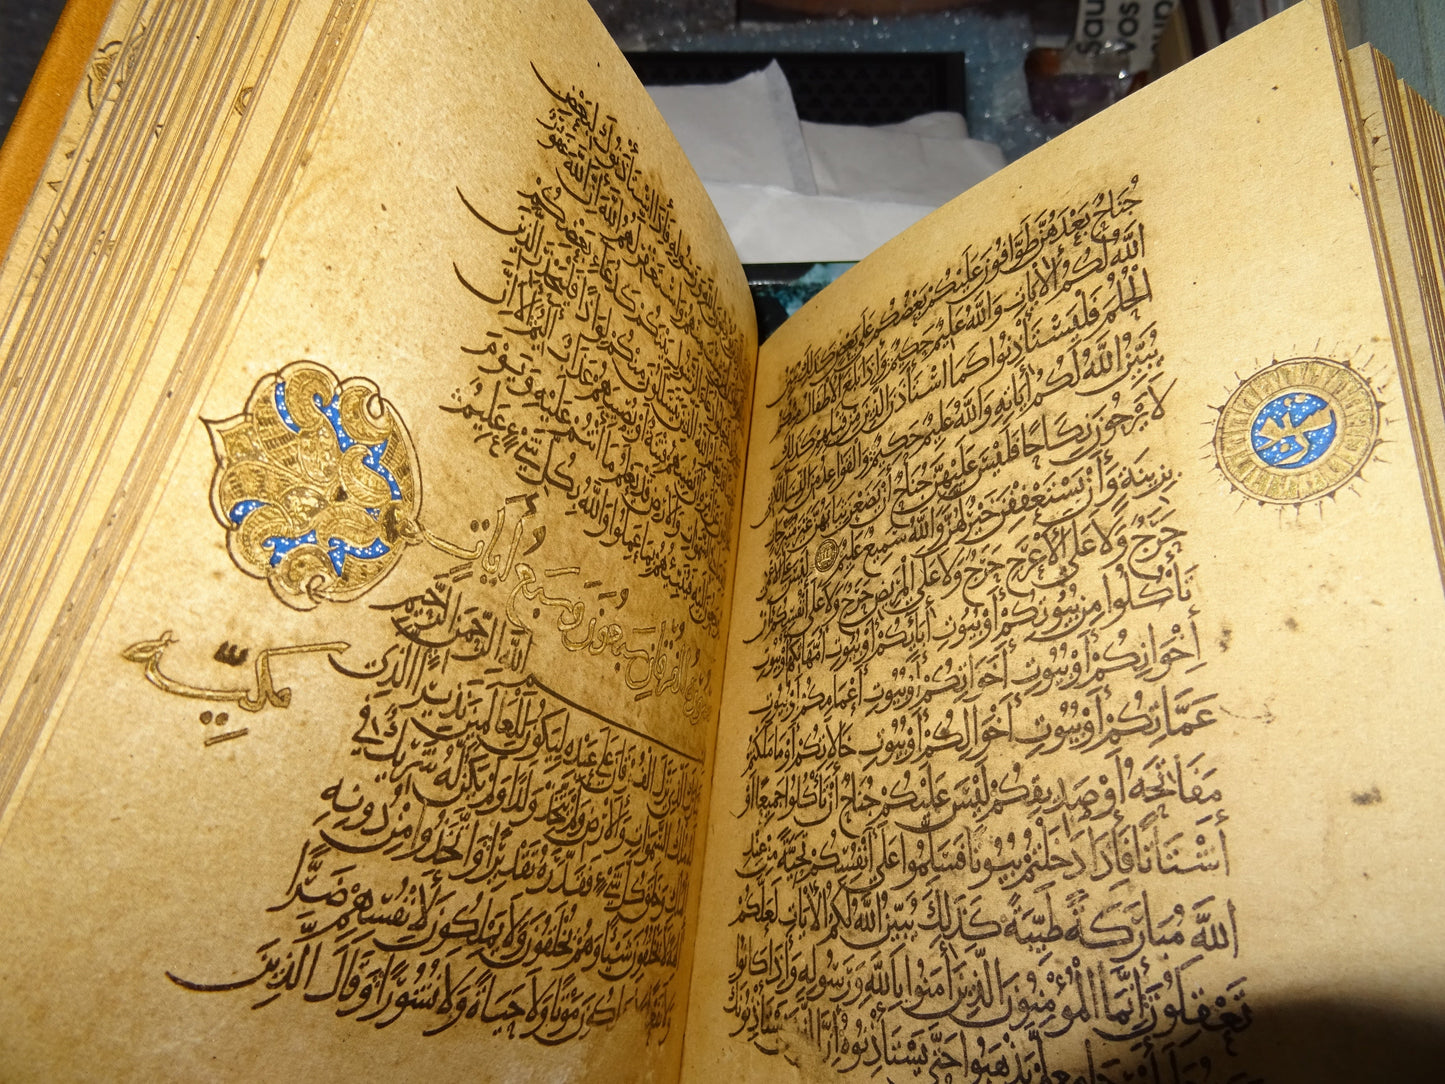 جناح بعدهن طوافون عليكم بعضكم على بعض كذلك يبين
الله لكم الآيات والله عليم حكيم وإذا بلغ الأطفال منكم
الحلم فليستأذنوا كما استأذن الذين من قبلهم كذلك
يبين الله لكم آياته والله عليم حكيم والقواعد من النساء اللاتي
لا يرجون نكاحا فليس عليهن جناح أن يضعن ثيابهن غير متبرجات
بزينة وأن يستعففن خير لهن والله سميع عليم ليس على الأعمى
حرج ولا على الأعرج حرج ولا على المريض حرج ولا على أنفسكم أن
تأكلوا من بيوتكم أو بيوت آبائكم أو بيوت أمهاتكم أو بيوت
إخوانكم أو بيوت أخواتكم أو بيوت أعمامكم أو بيوت
عماتكم أو بيوت أخوالكم أو بيوت خالاتكم أو ما ملكتم
مفاتحه أو صديقكم ليس عليكم جناح أن تأكلوا جميعا أو
أشتاتا فإذا دخلتم بيوتا فسلموا على أنفسكم تحية من عند
الله مباركة طيبة كذلك يبين الله لكم الآيات لعلكم
تعقلون إنما المؤمنون الذين آمنوا بالله ورسوله وإذا كانوا
معه على أمر جامع لم يذهبوا حتى يستأذنوه إن الذين يستأذنونك
ورسوله فإذا استأذنوك لبعض
واستغفر لهم الله إن الله غفور
بينكم كدعاء بعضكم
منكم لواذا فليحذر الذين
أو يصيبهم عذاب أليم ألا إن
والأرض قد يعلم ما أنتم عليه ويوم
يرجعون إليه فينبئهم بما عملوا والله بكل شيء عليم
سورة الفرقان سبعون وسبع آيات
مكية
بسم الله الرحمن الرحيم
الذي نزل الفرقان على عبده ليكون للعالمين نذيرا الذي
له ملك السموات والأرض ولم يتخذ ولدا ولم يكن له شريك في
الملك وخلق كل شيء فقدره تقديرا واتخذوا من دونه
آلهة لا يخلقون شيئا وهم يخلقون ولا يملكون لأنفسهم ضرا
ولا نفعا ولا يملكون موتا ولا حياة ولا نشورا وقال الذين